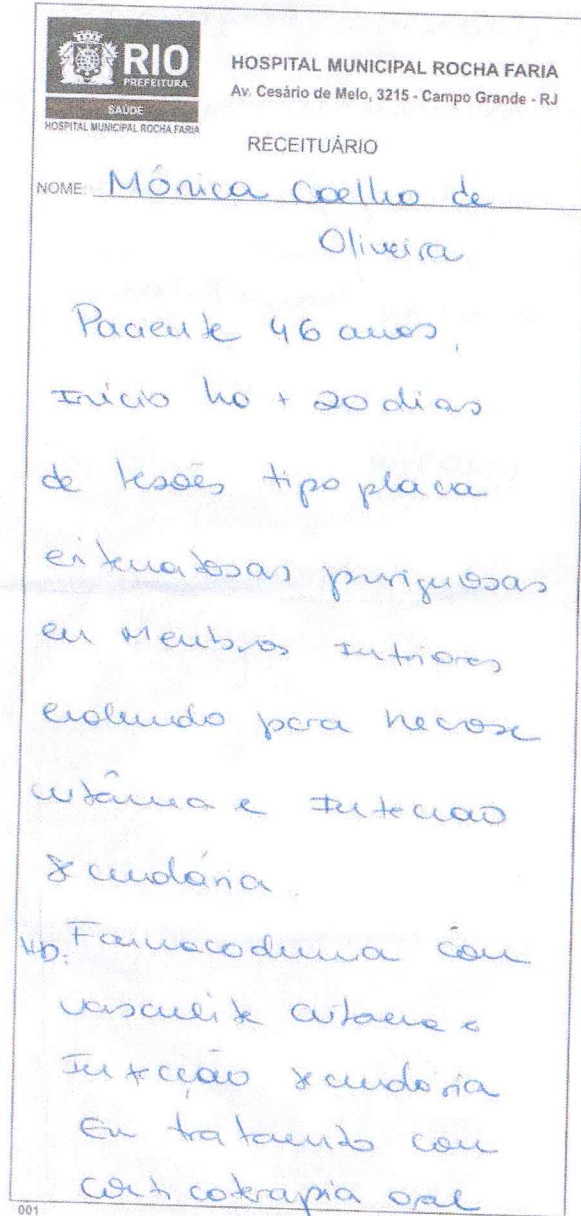 RIO
PREFEITURA
SAÚDE
HOSPITAL MUNICIPAL ROCHA FARIA
HOSPITAL MUNICIPAL ROCHA FARIA
Av. Cesário de Melo, 3215 - Campo Grande - RJ
RECEITUÁRIO
NOME: Mônica Coelho de
Oliveira
Paciente 46 anos,
Início há + 20 dias
de lesões tipo placa
eritematosas pruriginosas
em Membros Inferiores
evoluindo para necrose
cutânea e Infecção
secundária.
HD: Farmacodermia com
vasculite cutânea e
Infecção secundária
Em tratamento com
corticoterapia oral
001